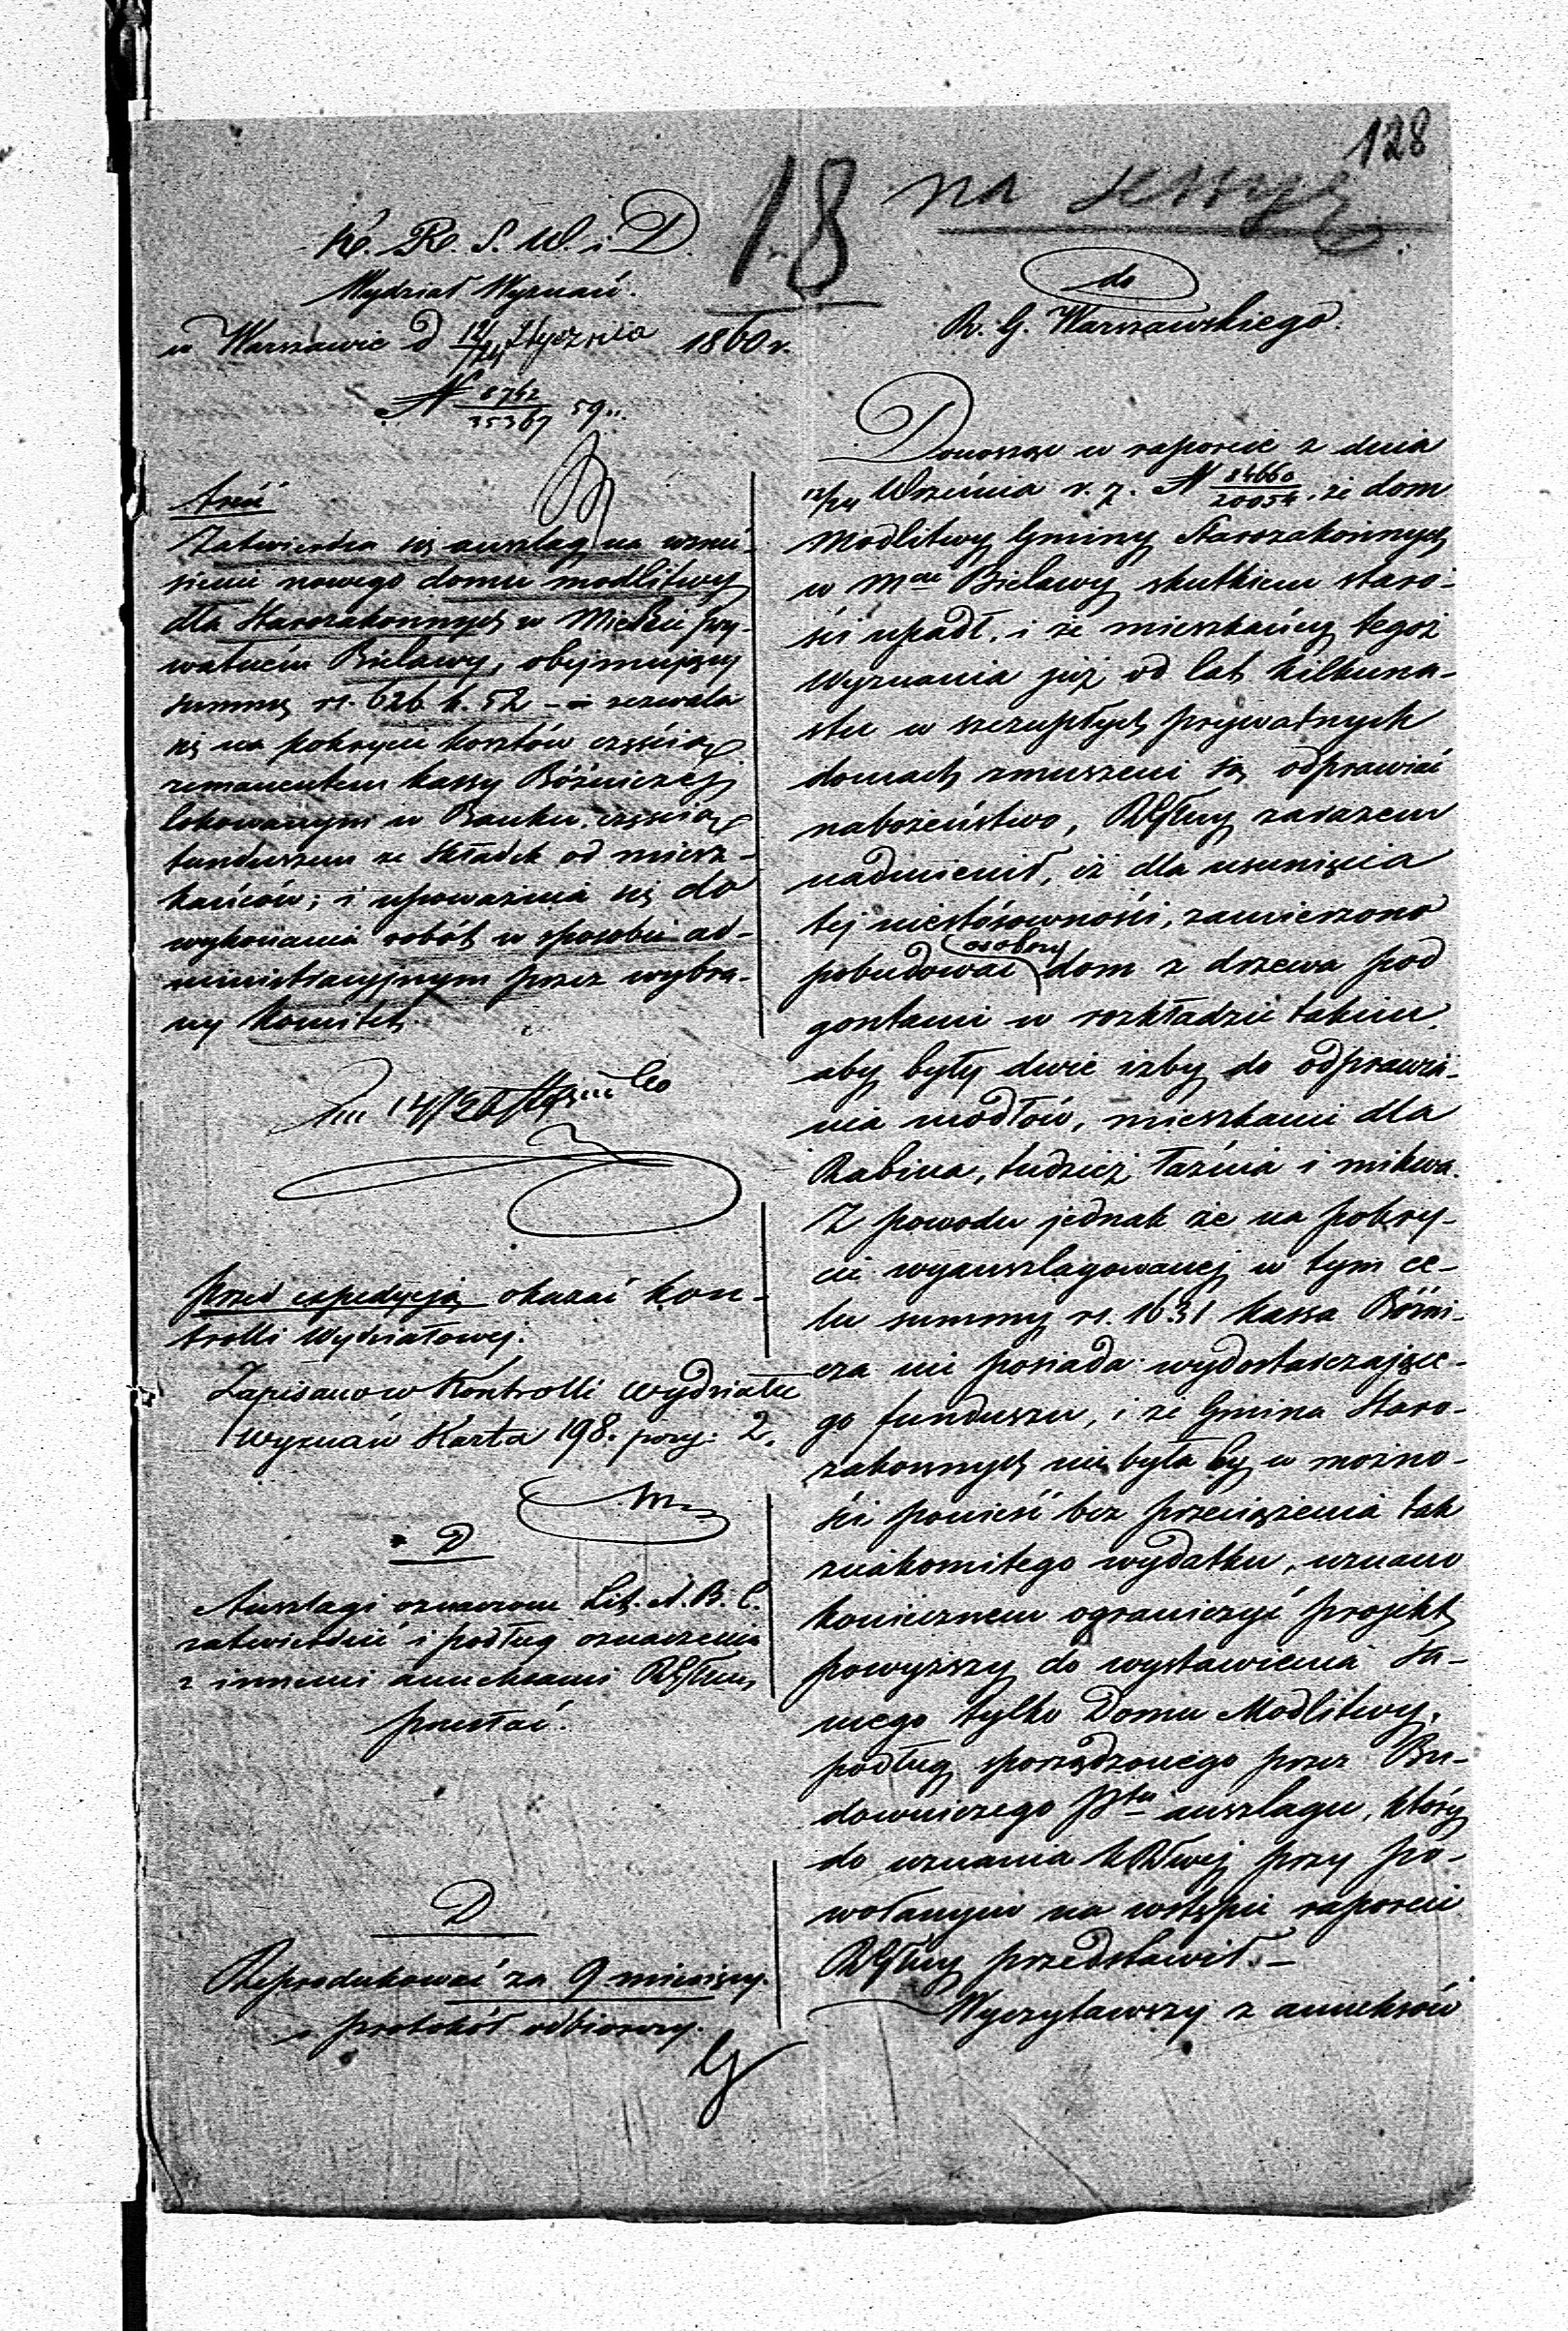 128
18
na sessyę
K. R. S. W. i D.
Wydział Wyznań.
w Warszawie d 12/24 Stycznia 1860 r.
N 8742/35367 59.
Treść
Zatwierdza się anszlag na wznie-
sienie nowego domu modlitwy
dla Starozakonnych w Mieście pry-
watném Bielawy, obejmujący
summę rs. 626 k. 52 – i zezwala
się na pokrycie kosztów częścią
remanentem kassy Bóżniczej
lokowanym w Banku, częścią
funduszem ze składek od miesz-
kańców; i upoważnia się do
wykonania robót w sposobie ad-
ministracyjnym przez wybra-
ny Komitet.
Przed expedycją okazać Kon-
trolli Wydziałowej.
Zapisano w Kontrolli Wydziału
Wyznań Karta 198. pozy: 2.
D
Anszlagi oznaczone Lit. A. B. C.
zatwierdzić i podług oznaczenia
z innemi annexami RGłmu
przesłać.
D
Reprodukować za 9 miesięcy.
o protokół odbiorczy.
do
R. G. Warszawskiego.
Donosząc w raporcie z dnia
12/24 Września r. z. N 84660/20054, że dom
Modlitwy Gminy Starozakonnych
w Mcie Bielawy skutkiem staro-
ści upadł, i że mieszkańcy tegoż
Wyznania już od lat kilkuna-
stu w szczupłych prywatnych
domach zmuszeni są odprawiać
nabożeństwo, RGłny zarazem
nadmienił, iż dla usunięcia
tej niestósowności, zamierzono
pobudować osobny dom z drzewa pod
gontami w rozkładzie takim,
aby były dwie izby do odprawia-
nia modłów, mieszkanie dla
Rabina, tudzież łaźnia i mikwa.
Z powodu jednak że na pokry-
cie wyanszlagowanej w tym ce-
lu summy rs. 1631 kassa Bóźni-
cza nie posiada wydostarczające-
go funduszu, i że Gmina Staro-
zakonnych nie była by w możno-
ści ponieść bez przeciążenia tak
znakomitego wydatku, uznano
koniecznem ograniczyć projekt
powyższy do wystawienia sa-
mego tylko Domu Modlitwy,
podług sporządzonego przez Bu-
downiczego Ptu anszlagu, który
do uznania KRwej przy po-
wołanym na wstępie raporcie
RGłny przedstawił. –
Wyczytawszy z annexów